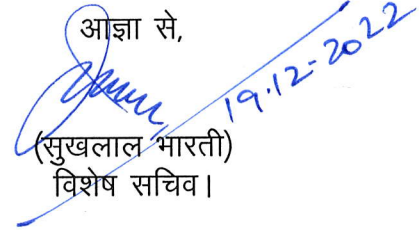 आज्ञा से,
19.12-2022
(सुखलाल भारती)
विशेष सचिव।